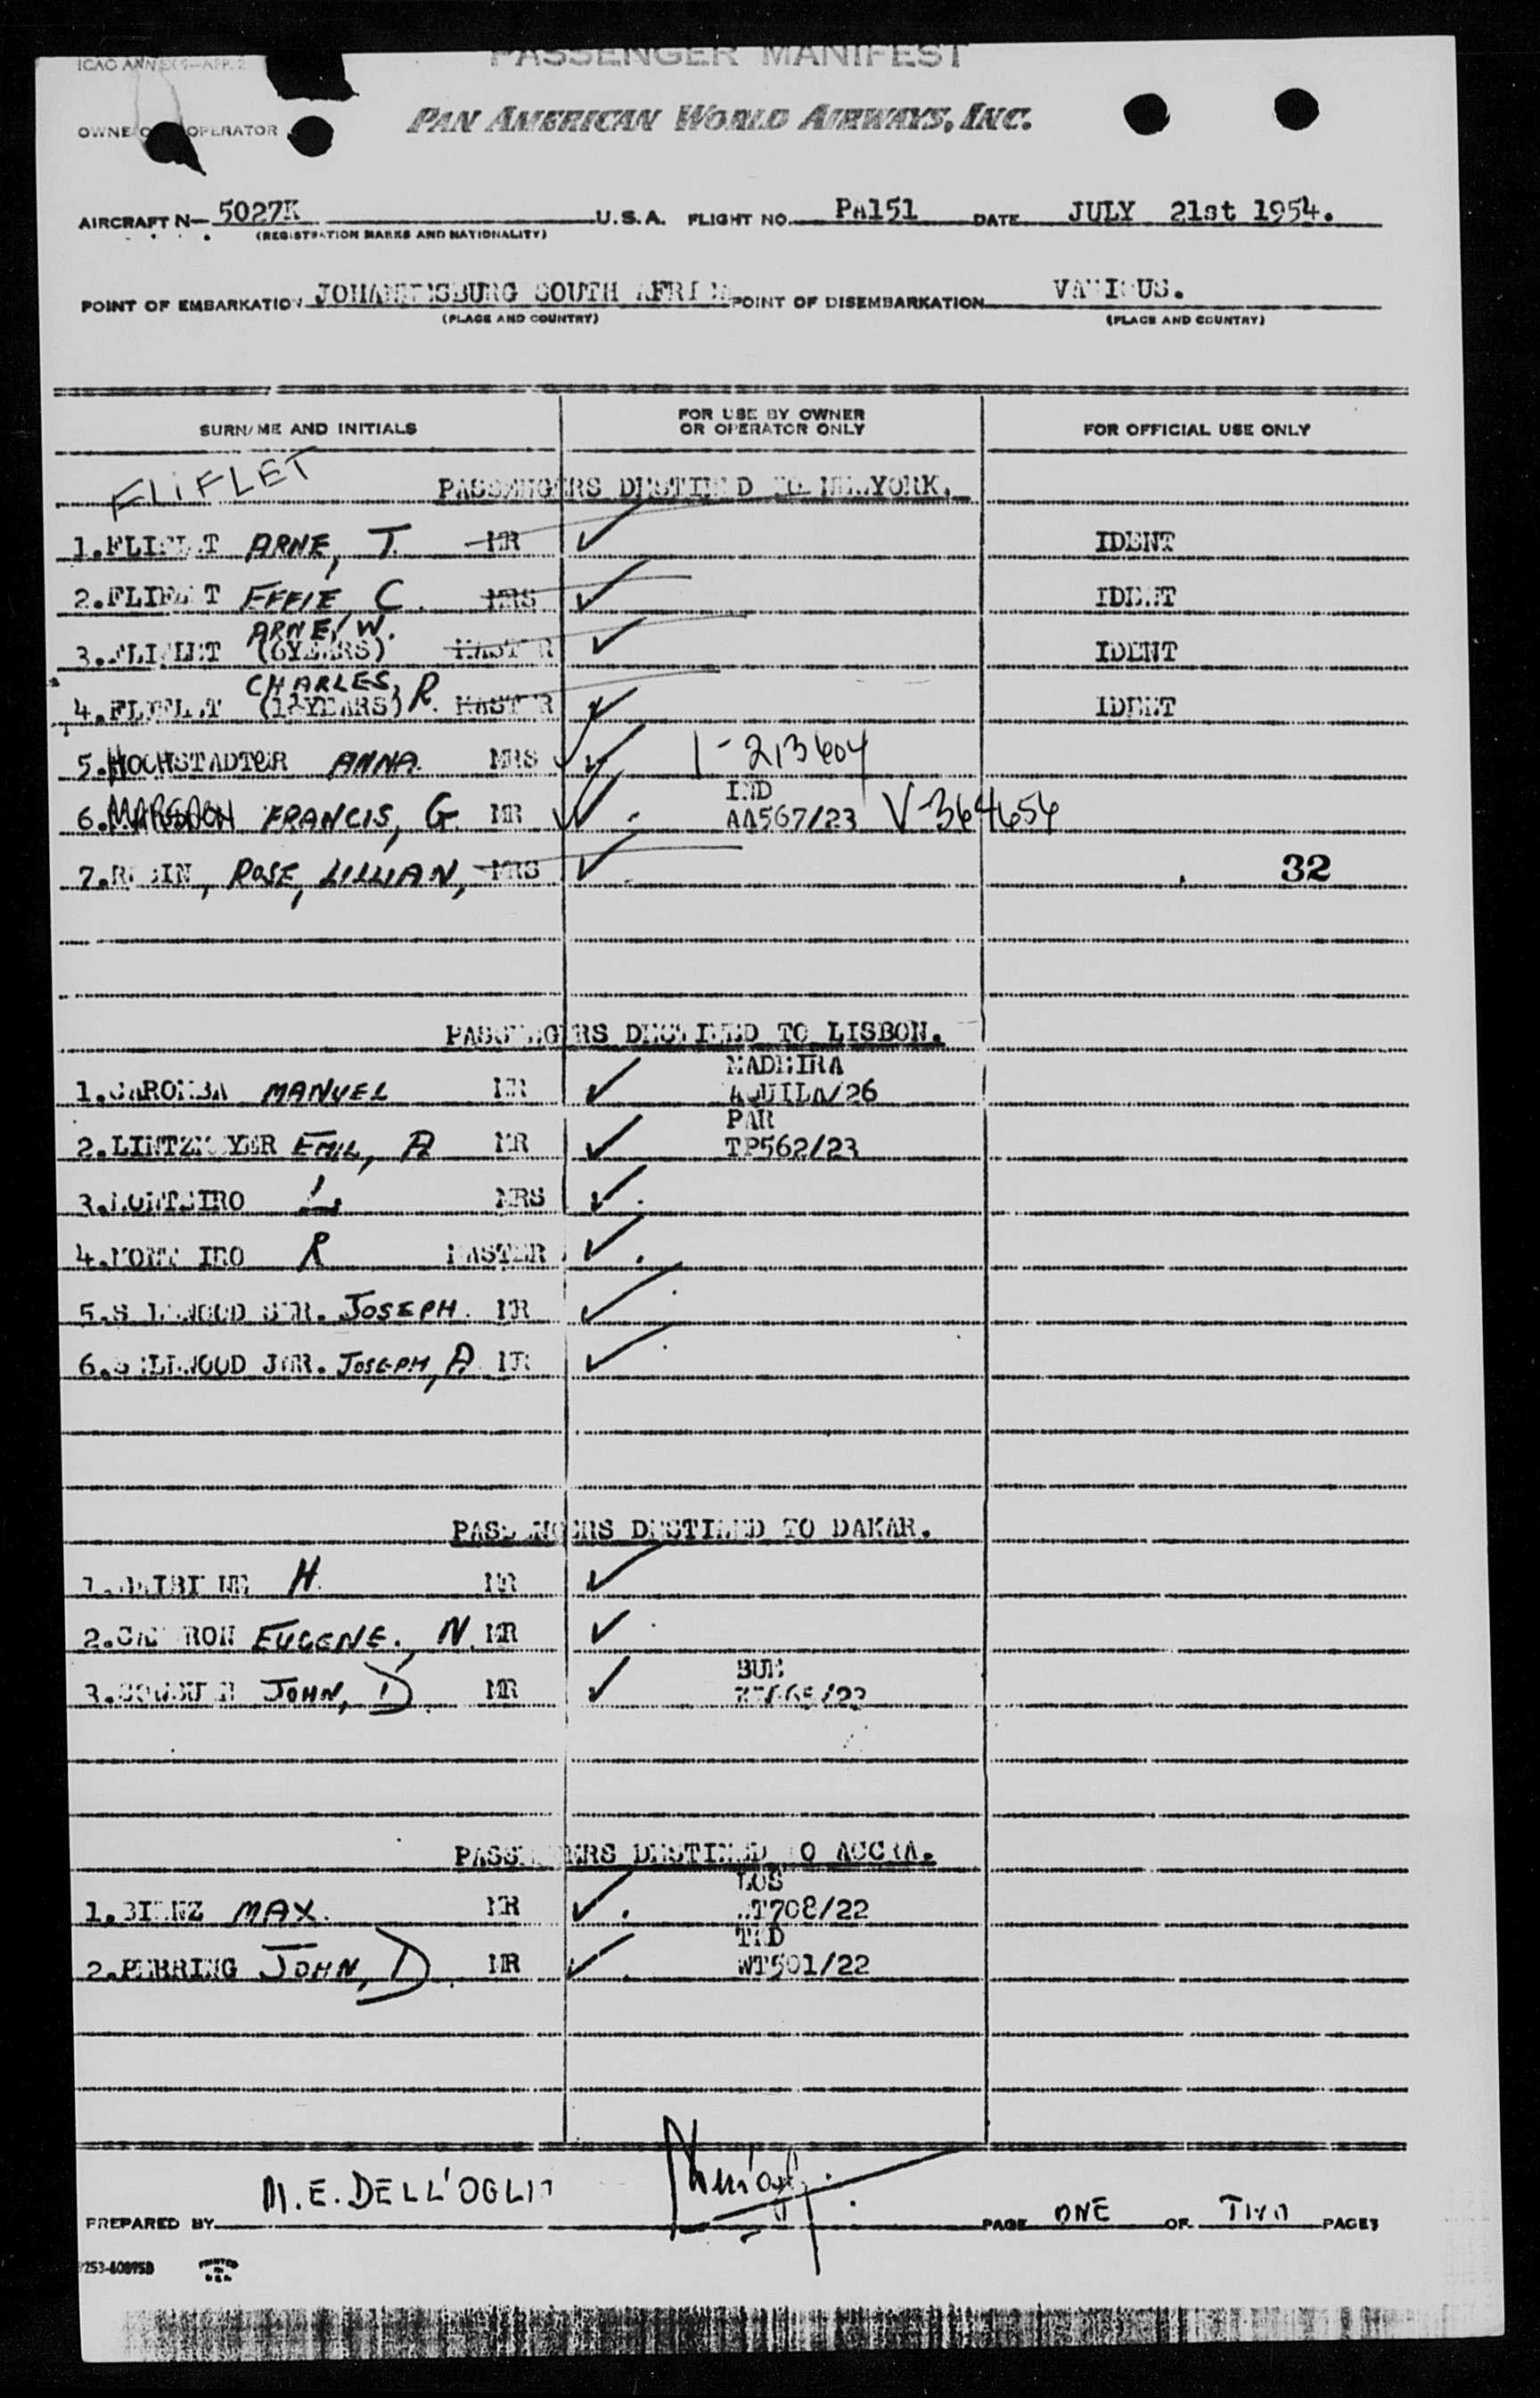 ICAO ANNEX 9—APP. 2
PASSENGER MANIFEST
OWNER OR OPERATOR
PAN AMERICAN WORLD AIRWAYS, INC.
AIRCRAFT N— 5027K U.S.A. FLIGHT NO. PA151 DATE JULY 21st 1954.
(REGISTRATION MARKS AND NATIONALITY)
POINT OF EMBARKATION JOHANNESBURG SOUTH AFRICA POINT OF DISEMBARKATION VARIOUS.
(PLACE AND COUNTRY) (PLACE AND COUNTRY)
SURNAME AND INITIALS
FOR USE BY OWNER
OR OPERATOR ONLY
FOR OFFICIAL USE ONLY
FLIFLET
PASSENGERS DESTINED TO NEW YORK.
1.FLIFLET ARNE, T. MR ✓ IDENT
2.FLIFLET EFFIE C. MRS ✓ IDENT
ARNE, W.
3.FLIFLET (6YEARS) MASTER ✓ IDENT
CHARLES, R.
4.FLIFLET (12YEARS) MASTER ✓ IDENT
5.HOCHSTADTER ANNA. MRS ✓ 1-213604
IND
6. FRANCIS, G. MR ✓ AA567/23 V-364654
7.RUBIN, ROSE, LILLIAN, MRS ✓ 32
PASSENGERS DESTINED TO LISBON.
MADEIRA
1. MANUEL MR ✓ AQUILA/26
PAR
2.LINTZMEYER EMIL, A MR ✓ TP562/23
3.MONTEIRO L. MRS ✓
4.MONTEIRO R MASTER ✓
5. SNR. JOSEPH. MR ✓
6. JNR. JOSEPH, A. MR ✓
PASSENGERS DESTINED TO DAKAR.
1. H. MR ✓
2.CAMERON EUGENE. N. MR ✓
3. JOHN, D. MR ✓
PASSENGERS DESTINED TO ACCRA.
LOS
1.BIENZ MAX. MR ✓ WT708/22
TKD
2.PERRING JOHN, D. MR ✓ WT501/22
PREPARED BY M.E. DELL'OGLIO PAGE ONE OF TWO PAGES
PRINTED
IN
U.S.A.